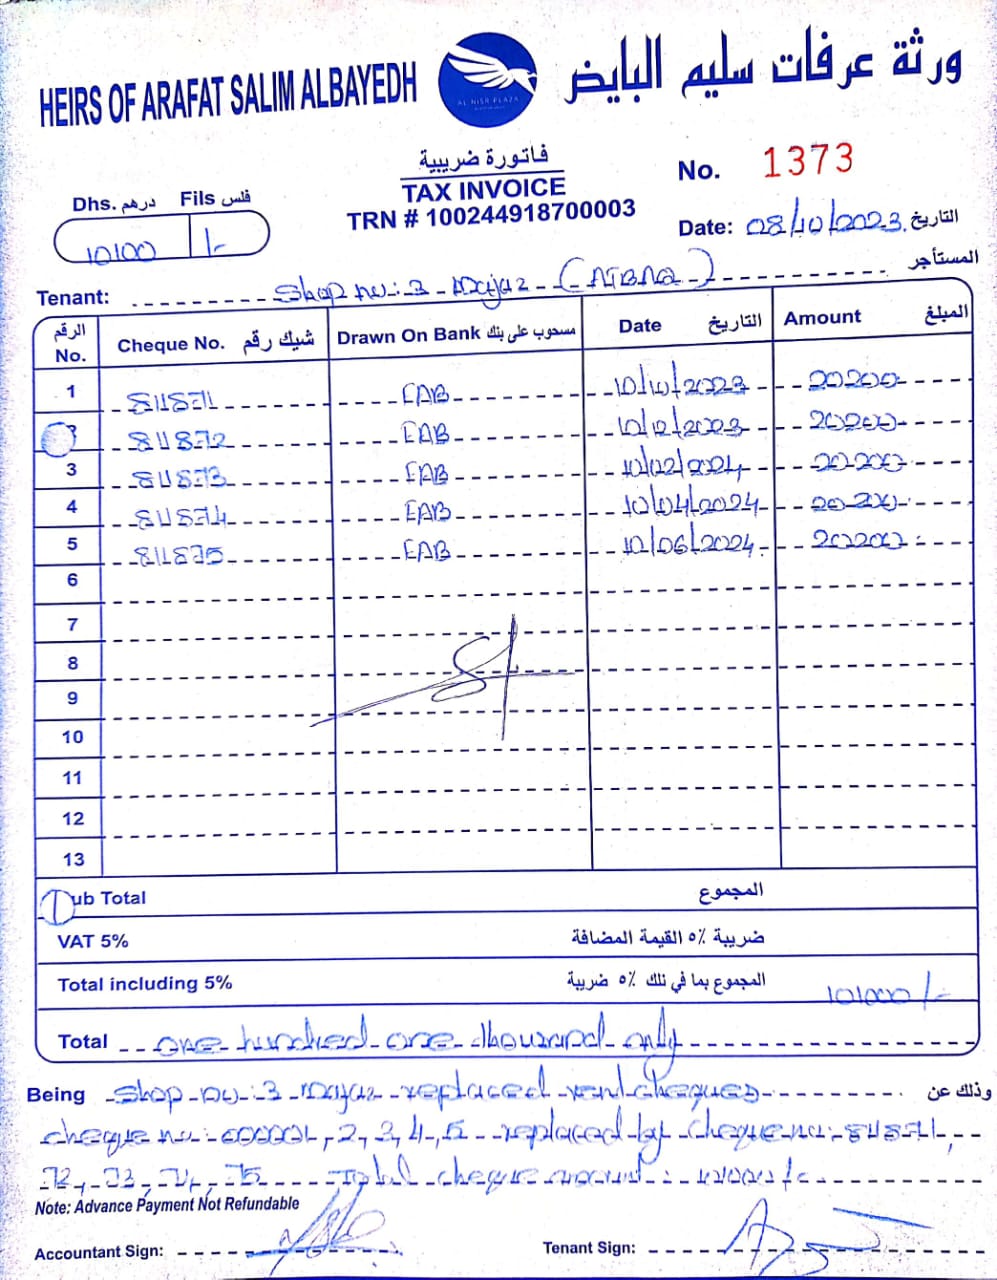 HEIRS OF ARAFAT SALIM ALBAYEDH
AL NISR PLAZA
ورثة عرفات سليم البايض
فاتورة ضريبية
TAX INVOICE
TRN # 100244918700003
No. 1373
Dhs. درهم Fils فلس
10100 /-
Date: 08/10/2023 التاريخ
Tenant: Shop no:3 Majaz المستأجر
الرقم No. Cheque No. شيك رقم Drawn On Bank مسحوب على بنك Date التاريخ Amount المبلغ
1 811871 FAB 10/10/2023 20200
811872 FAB 10/12/2023 20200
3 811873 FAB 10/02/2024 20200
4 811874 FAB 10/04/2024 20200
5 811875 FAB 10/06/2024 20200
6
7
8
9
10
11
12
13
ub Total المجموع
VAT 5% ضريبة ٥% القيمة المضافة
Total including 5% المجموع بما في تلك ٥% ضريبة 101000/-
Total one hundred one thousand only
Being Shop no:3 Majaz replaced rent cheques وذلك عن
cheque no: 000001, 2, 3, 4, 5 replaced by cheque no: 811871,
72, 73, 74, 75 Total cheque amount:
Note: Advance Payment Not Refundable
Accountant Sign: Tenant Sign: